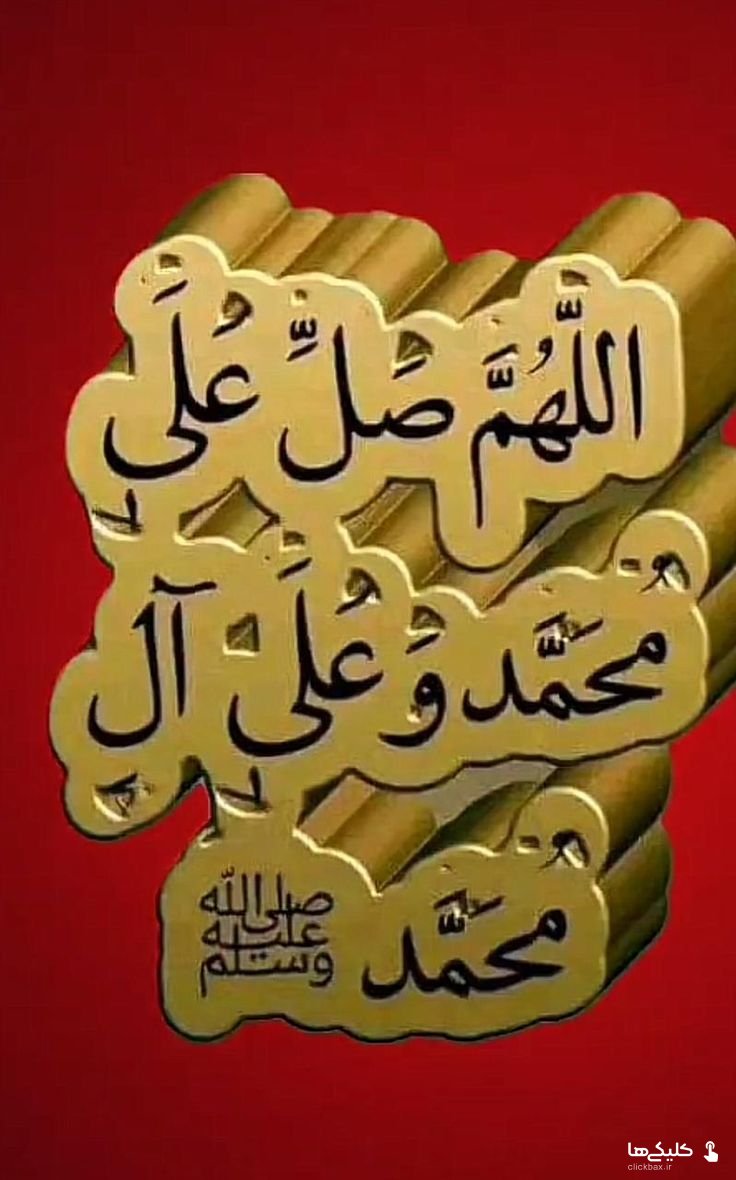 اللَّهُمَّ صَلِّ عَلَى
مُحَمَّد وَ عَلَى آلِ
مُحَمَّد ﷺ
کلیکی‌ها
clickbax.ir